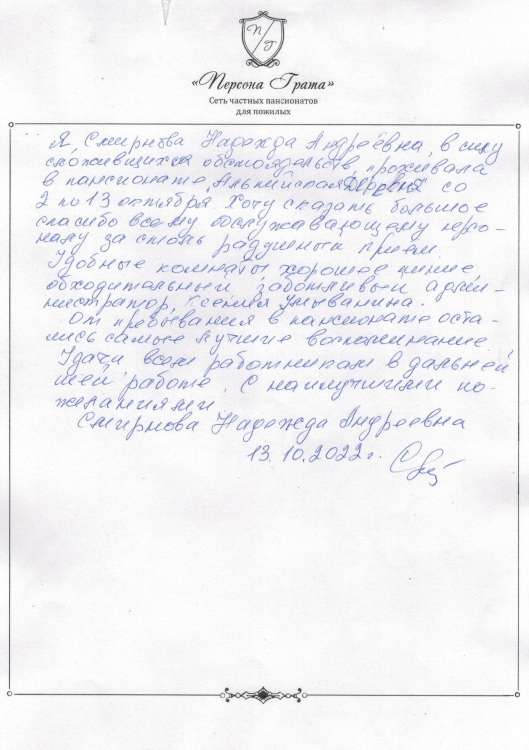 П Г
«Персона Грата»
Сеть частных пансионатов
для пожилых
Я, Смирнова Надежда Андреевна, в силу
сложившихся обстоядельств, проживала
в пансионате „Альпийская Деревня" со
2 по 13 октября. Хочу сказать большое
спасибо всему обслуживающему персо-
налу за столь радушный приём.
Удобные комнаты, хорошое питание,
обходительный заботливый адми-
нистратор, Ксения Умыванина.
От пребывания в пансионате оста-
лись самые лучшие воспоминание.
Удачи всем работникам в дальней
шей работе. С наилучшими по-
желаниями
Смирнова Надежда Андреевна
13.10.2022г.